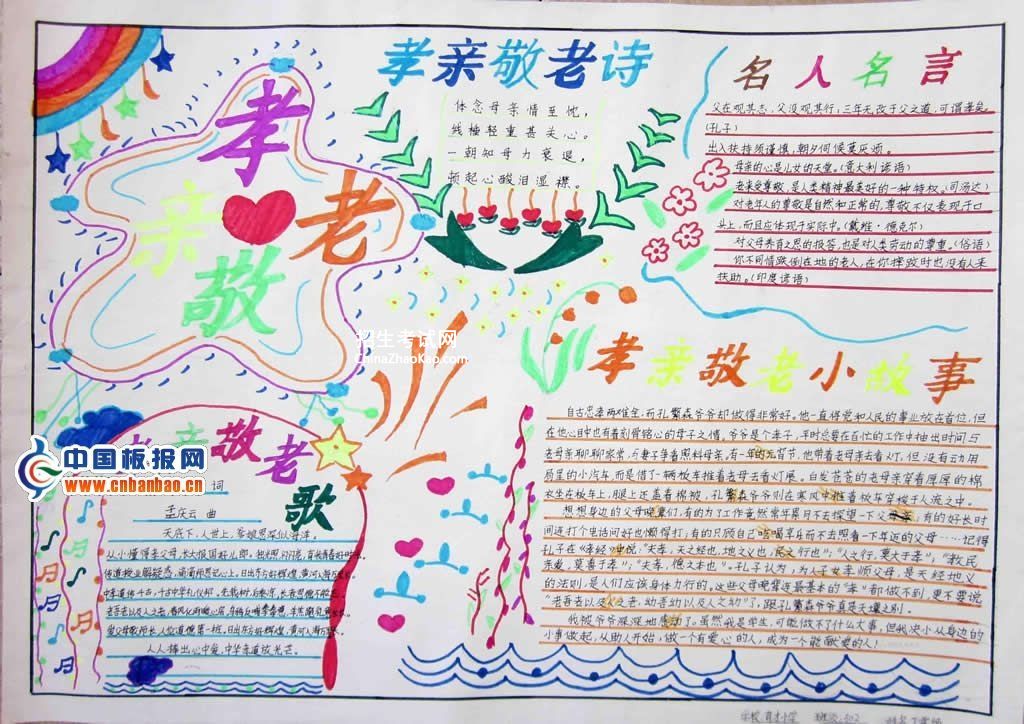 孝
亲
敬
老
孝亲敬老诗
体念母亲情至忱，
线柚轻重甚关心。
一朝知母力衰退，
顿起心酸泪湿襟。
名人名言
父在观其志，父没观其行，三年无改于父之道，可谓孝矣。
(孔子)
出入扶持须谨慎，朝夕伺候莫厌烦。
母亲的心是儿女的天堂。(意大利谚语)
老来受尊敬，是人类精神最美好的一种特权。(司汤达)
对老年人的尊敬是自然和正常的，尊敬不仅表现于口
头上，而且应体现于实际中。(戴维·德克尔)
对父母养育之恩的报答，也是对人类劳动的尊重。(俗语)
你不同情跌倒在地的老人，在你摔跤时也没有人来
扶助。(印度谚语)
招生考试网
ChinaZhaoKao.com
孝亲敬老小故事
自古忠孝两难全，而孔繁森爷爷却做得非常好。他一直将党和人民的事业放在首位，但
在他心目中也有着刻骨铭心的母子之情。爷爷是个孝子，平时总要在百忙的工作中抽出时间与
老母亲聊聊家常，与妻子争着照料母亲，有一年的元宵节，他带着老母亲去看灯，但没有动用
局里的小汽车，而是借了一辆板车推着老母去看灯展。白发苍苍的老母亲穿着厚厚的棉
衣坐在板车上，腿上还盖着棉被，孔繁森爷爷则在寒风中推着板车穿梭于人流之中。
想想身边的父母晚辈们，有的为了工作竟然常年累月不去探望一下父母亲；有的好长时
间连打个电话问好也懒得打；有的只顾自己吃喝享乐而不去照看一下年迈的父母……记得
孔子在《孝经》中说："夫孝，天之经也，地之义也，民之行也"；"人之行，莫大于孝"；"教民
亲爱，莫善于孝"；"夫孝，德之本也"。孔子认为，为人子女孝顺父母，是天经地义
的法则，是人们应该身体力行的，这些父母晚辈连最基本的"孝"都做不到，更不要说
"老吾老以及人之老，幼吾幼以及人之幼"了，跟孔繁森爷爷真是天壤之别。
我被爷爷深深地感动了。虽然我是学生，可能做不了什么大事，但我决心从身边的
小事做起，从助人开始，做一个有爱心的人，成为一个能献爱的人！
亲敬老
歌
中国板报网
www.cnbanbao.cn
词
孟庆云 曲
天底下，人世上，爹娘恩深似海洋。
人人捧出心中爱，中华孝道放光芒。